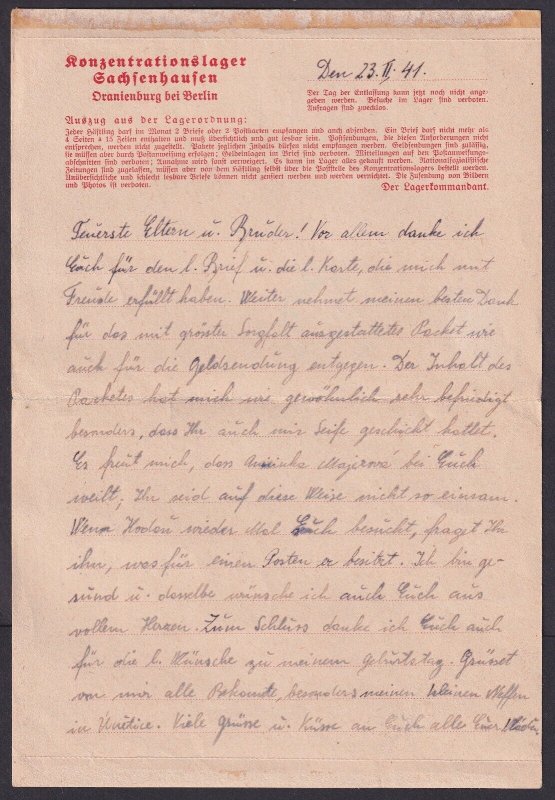 Konzentrationslager
Sachsenhausen
Oranienburg bei Berlin
Den 23.II.41.
Der Tag der Entlassung kann jetzt noch nicht ange-
geben werden. Besuche im Lager sind verboten.
Anfragen sind zwecklos.
Auszug aus der Lagerordnung:
Jeder Häftling darf im Monat 2 Briefe oder 2 Postkarten empfangen und auch absenden. Ein Brief darf nicht mehr als
4 Seiten à 15 Zeilen enthalten und muß übersichtlich und gut lesbar sein. Postsendungen, die diesen Anforderungen nicht
entsprechen, werden nicht zugestellt. Pakete jeglichen Inhalts dürfen nicht empfangen werden. Geldsendungen sind zulässig,
sie müssen aber durch Postanweisung erfolgen; Geldeinlagen im Brief sind verboten. Mitteilungen auf den Postanweisungs-
abschnitten sind verboten; Annahme wird sonst verweigert. Es kann im Lager alles gekauft werden. Nationalsozialistische
Zeitungen sind zugelassen, müssen aber von dem Häftling selbst über die Poststelle des Konzentrationslagers bestellt werden.
Unübersichtliche und schlecht lesbare Briefe können nicht zensiert werden und werden vernichtet. Die Zusendung von Bildern
und Photos ist verboten.
Der Lagerkommandant.
Teuerste Eltern u. Bruder! Vor allem danke ich
Euch für den l. Brief u. die l. Karte, die mich mit
Freude erfüllt haben. Weiter nehmet meinen besten Dank
für das mit grösster Sorgfalt ausgestattetes Packet wie
auch für die Geldsendung entgegen. Der Inhalt des
Packetes hat mich wie gewöhnlich sehr befriedigt
besonders, dass Ihr auch mir Seife geschickt hattet.
Es freut mich, dass Majerová bei Euch
weilt; Ihr seid auf diese Weise nicht so einsam.
Wenn Hodou wieder Mal Euch besucht, fraget Ihr
ihn, was für einen Posten er besitzt. Ich bin ge-
sund u. dasselbe wünsche ich auch Euch aus
vollem Herzen. Zum Schluss danke ich Euch auch
für die l. Wünsche zu meinem Geburtstag. Grüsset
von mir alle Bekannte, besonders meinen kleinen Neffen
in Únětice. Viele Grüsse u. Küsse an Euch alle Euer